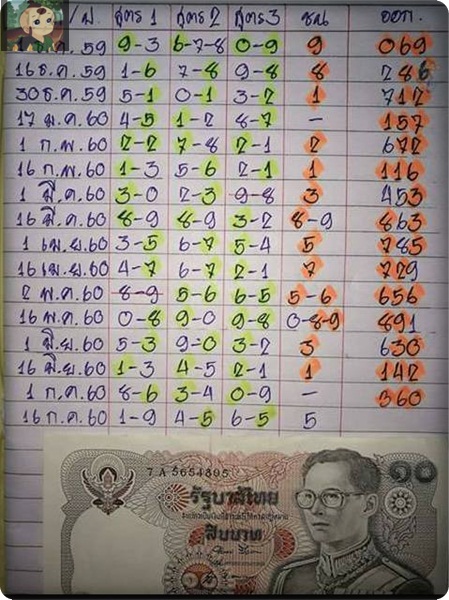 / ป. สูตร 1 สูตร 2 สูตร 3 ชน ออก.
1 ธ.ค. 59 9-3 6-7-8 0-9 9 069
16 ธ.ค. 59 1-6 7-8 9-8 8 286
30 ธ.ค. 59 5-1 0-1 3-2 1 712
17 ม.ค. 60 4-5 1-2 8-7 - 157
1 ก.พ. 60 2-2 7-8 2-1 2 672
16 ก.พ. 60 1-3 5-6 2-1 1 116
1 มี.ค. 60 3-0 2-3 9-8 3 453
16 มี.ค. 60 8-9 8-9 3-2 8-9 863
1 เม.ย. 60 3-5 6-7 5-4 5 785
16 เม.ย. 60 4-7 6-7 2-1 7 729
2 พ.ค. 60 8-9 5-6 6-5 5-6 656
16 พ.ค. 60 0-8 9-0 9-8 0-8-9 891
1 มิ.ย. 60 5-3 9-0 3-2 3 630
16 มิ.ย. 60 1-3 4-5 2-1 1 142
1 ก.ค. 60 8-6 3-4 0-9 - 360
16 ก.ค. 60 1-9 4-5 6-5 5
7A 5654895 ๑๐
รัฐบาลไทย
สิบบาท